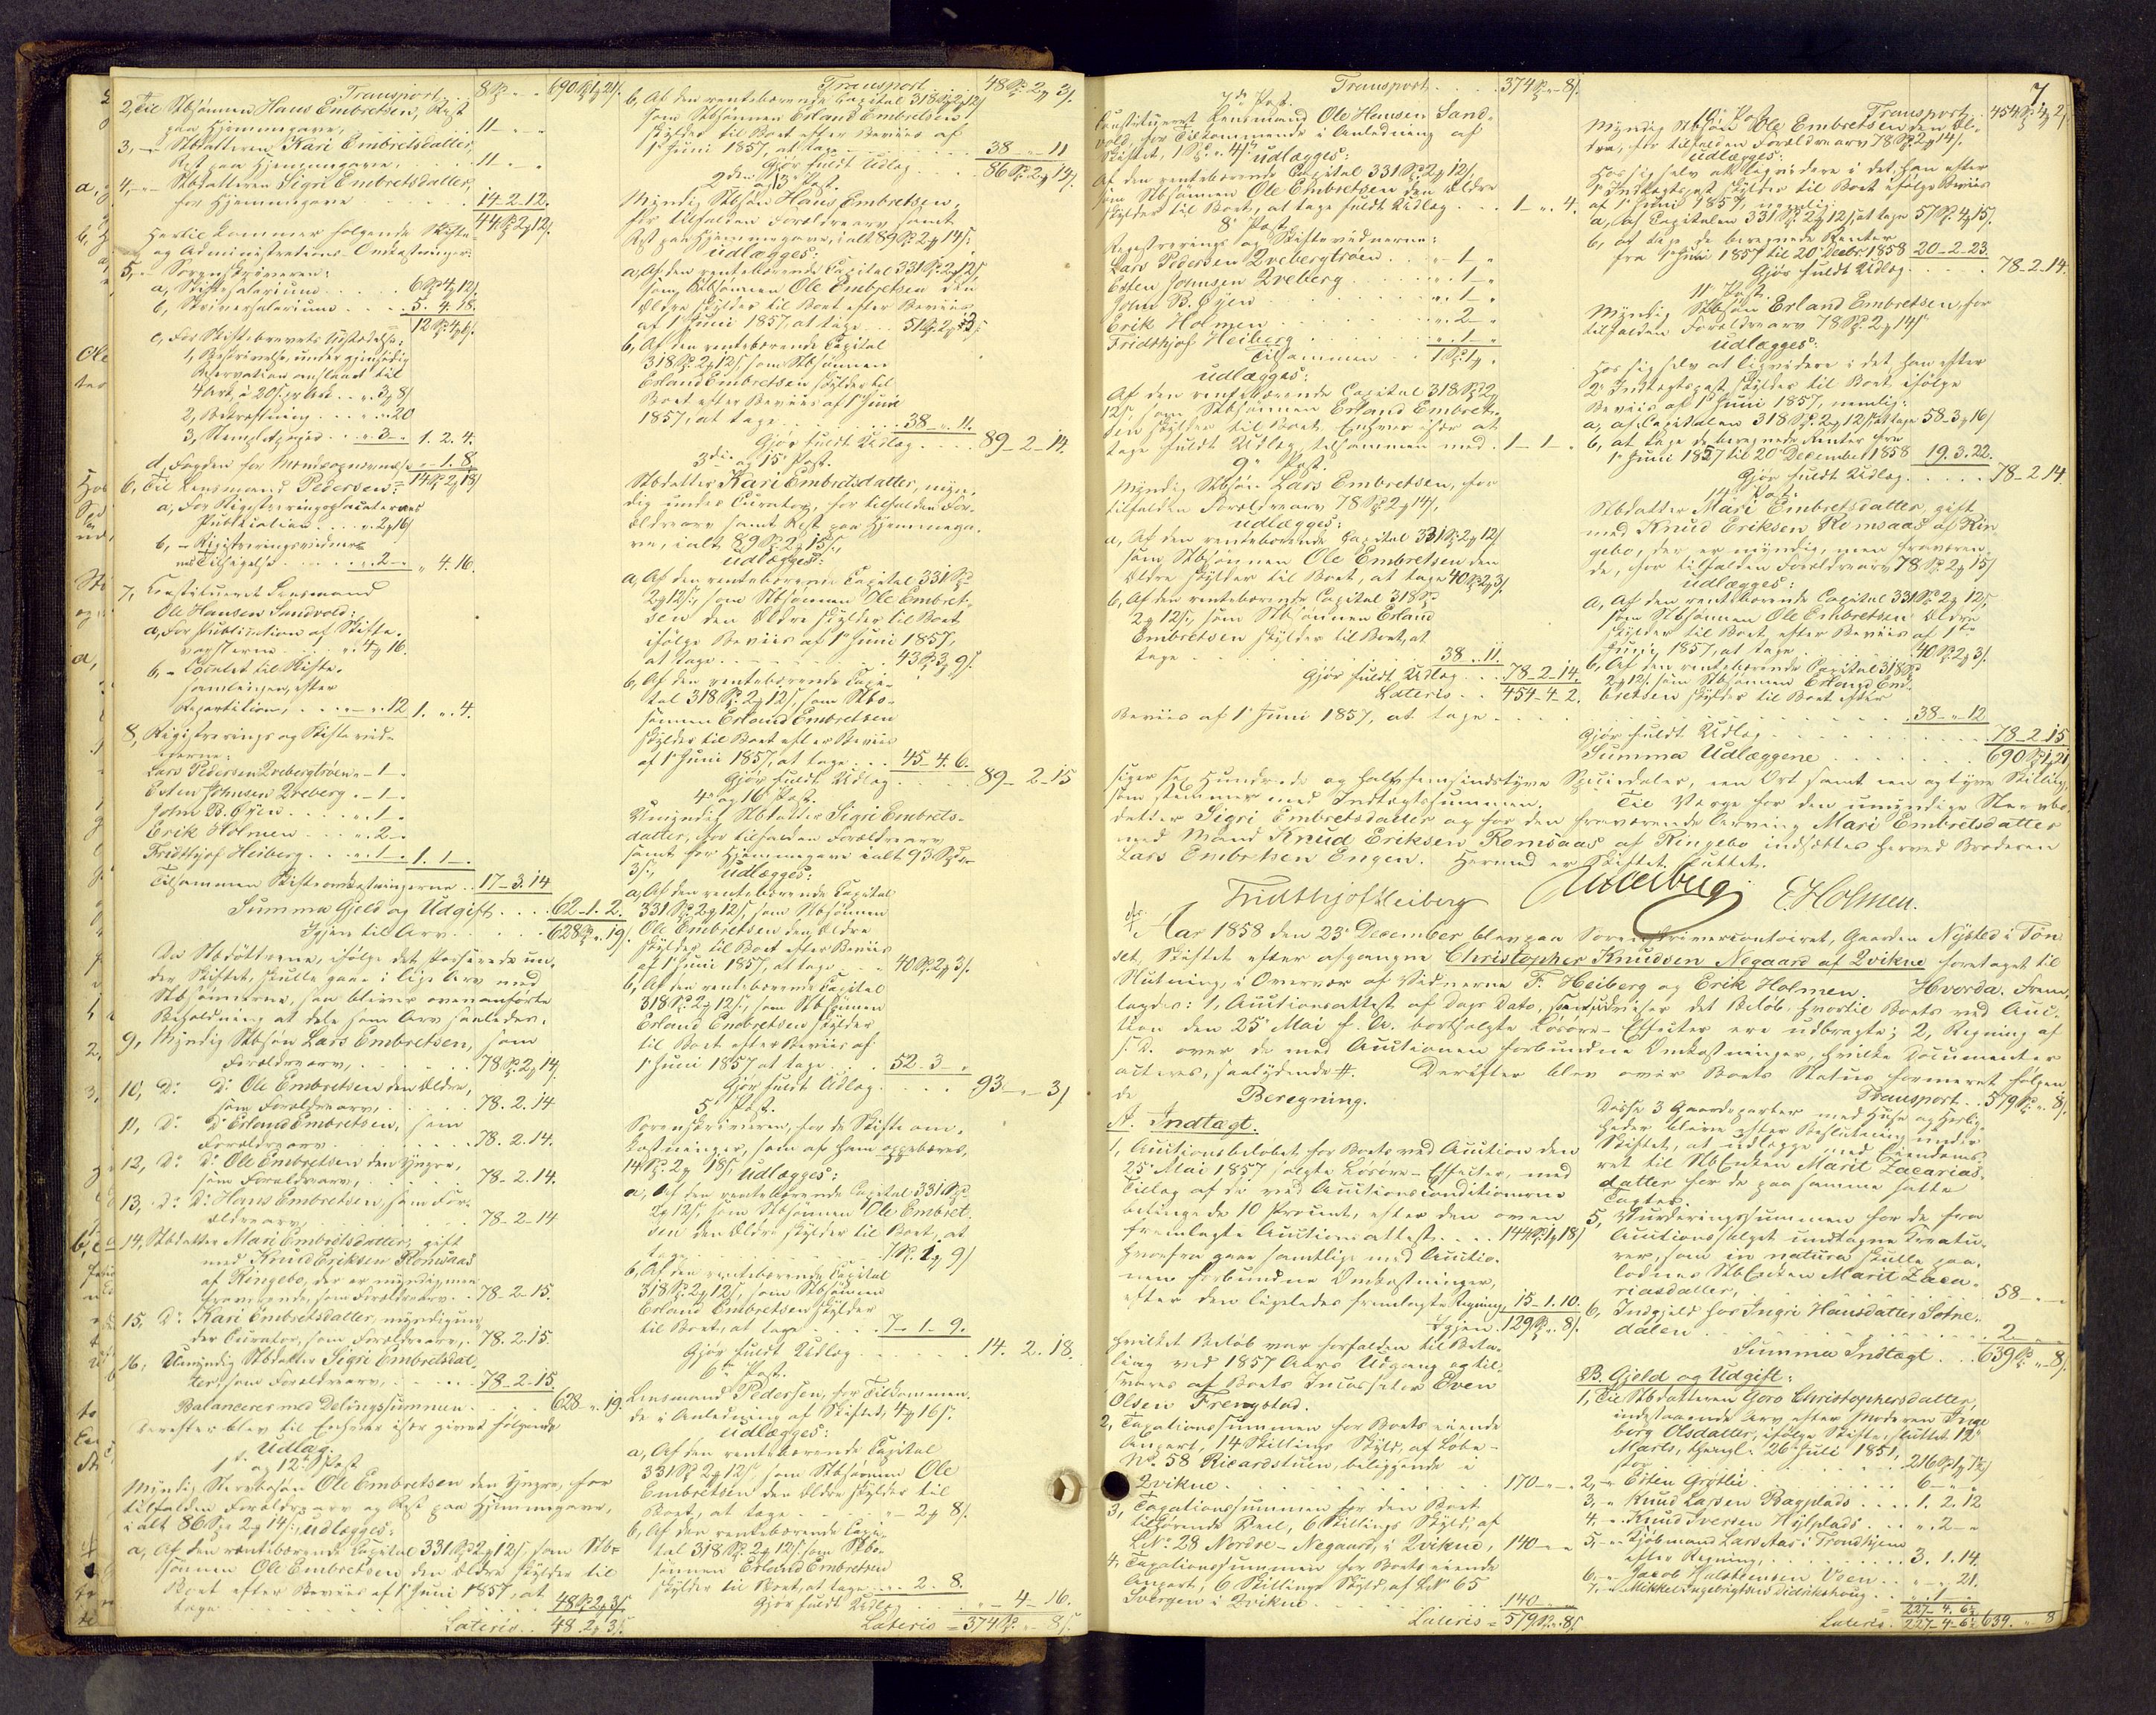 Transport . . 8 Spd. " " 690 Spd. 1 ort 21 s.
2, Til Stbsønnen Hans Embretsen, Rest
paa Hjemmegave, . . . . . 11 - " - "
3, - Stbdatteren Kari Embretsdatter,
Rest paa Hjemmegave, . . . . 11 " - "
4, - Stbdatteren Sigri Embretsdatter,
for Hjemmegave . . . . . 14. 2. 12.
44 Spd. 2 ort 12 s.
Hertil kommer følgende Skifte-
og Administrations-Omkostninger:
5, - Sorenskriveren:
a, Skiftesalarium . . . . 6 Spd. 4 ort 12 s.
b, Skriversalarium . . . . 5. 4. 18.
12 Spd. 4 ort 6 s.
c, For Skiftebrevets Udstædelse:
1, Beskrivelse, under gjensidig
Reservation anslaaet til
4 Ark à 20 s. pr Ark . . " 3 ort 8 s.
2, Bekræftning . . . " " 20
3, Stemplet papir . . . " 3 - " 1. 2. 4.
d, Fogden for Mændsopnævnelse " - 1. 8.
= 14 Spd. 2 ort 18 s.
6, Til Lensmand Pedersen:
a, For Registreringsplacaternes
Publication . . . " 2 ort 16 s.
b, - Registreringsvidner-
nes Tilsigelse . . . . . . " 2 - " " 4. 16.
7, Constitueret Lensmand
Ole Hansen Sandvold:
a, For Publication af Skifte-
varslerne . . . . " 4 ort 16.
b, - Comlet til Skifte-
samlingen, efter
Repartition, . . . . - " 12 1. " 4.
8, Registrerings og Skiftevid-
nerne:
Lars Pedersen Qvebergtrøen " - 1 -
Esten Johnsen Qveberg . . - 1 -
John B. Øyen . . . . . " 1 -
Erik Holmen . . . " 2 -
Fridthjof Heiberg . . . " 1 - " 1. 1 - "
Tilsammen Skifteomkostningerne . . 17 - 3. 14
Summa Gjeld og Udgift . . . . 62 - 1. 2.
Igjen til Arv . . . . . . 628 Spd. " 19 s.
Da Stbdøttrene, ifølge det Passerede un-
der Skiftet, skulle gaae i lige Arv med
Stbsønnerne, saa bliver ovenanførte
Beholdning at dele som Arv saaledes:
9, Myndig Stbsøn Lars Embretsen, som
Forældrearv, . . . . . . 78 Spd. 2 ort 14
10, Do Do Ole Embretsen den Ældre,
som Forældrearv, . . . . 78. 2. 14
11, Do Do Erland Embretsen, som
Forældrearv . . . . . . 78. 2. 14.
12, Do Do Ole Embretsen den Yngre,
som Forældrearv, . . . . 78. 2. 14.
13, Do Do Hans Embretsen, som For-
ældrearv, . . . . . . 78 - 2 - 14
14, Stbdatter Mari Embretsdatter, gift
med Knud Eriksen Romsaas
af Ringebo, der er myndig men
fraværende, som Forældrearv . . 78 - 2 - 15.
15, Do Kari Embretsdatter, myndig un-
der Curator, som Forældrearv, . . 78. 2. 15
16, Umyndig Stbdatter Sigri Embretsdat-
ter, som Forældrearv, . . . . 78 - 2 - 15.
Balancerer med Delingssummen . . . 628 " 19.
Derefter blev til Enhver især givet følgende
Udlæg.
1ste og 12te Post
Myndig Stervbosøn Ole Embretsen den Yngre, for
tilfalden Forældrearv og Rest paa Hjemmegave,
i alt 86 Spd. 2 ort 14 s., udlægges:
a, Af den rentebærende Capital 331 Spd. 2 ort 12 s., som Stb-
sønnen Ole Embretsen den Ældre skylder til
Boet efter Beviis af 1ste Juni 1857, at
tage . . . . . . . 48 Spd. 2 ort 3 s.
Lateris . . 48. 2 ort 3 s.
Transport . . 48 Spd. 2 ort 3 s.
b, Af den rentebærende Capital 318 Spd. 2 ort 12 s.
som Stbsønnen Erland Embretsen
skylder til Boet efter Beviis af
1ste Juni 1857, at tage . . . . . . 38 - " 11
Gjør fuldt Udlæg . . . 86 Spd. 2 ort 14 s.
2den og 13de Post.
Myndig Stbsøn Hans Embretsen,
for tilfalden Forældrearv, samt
Rest paa Hjemmegave, i alt 89 Spd. 2 ort 14 s.
udlægges:
a, Af den rentebærende Capital 331 Spd. 2 ort 12 s.
som Stbsønnen Ole Embretsen den
Ældre skylder til Boet efter Beviis
af 1ste Juni 1857, at tage . . . 51 Spd. 2 ort 3 s.
b, Af den rentebærende Capital
318 Spd. 2 ort 12 s., som Stbsønnen
Erland Embretsen skylder til
Boet efter Beviis af 1ste Juni
1857, at tage . . . . . . . . 38 - " 11.
Gjør fuldt Udlæg . . . . 89 - 2 - 14.
3die og 15de Post.
Stbdatter Kari Embretsdatter, myn-
dig under Curator, for tilfalden For-
ældrearv samt Rest paa Hjemmega-
ve, i alt 89 Spd. 2 ort 15 s.,
udlægges:
a, Af den rentebærende Capital 331 Spd.
2 ort 12 s., som Stbsønnen Ole Embret-
sen den Ældre skylder til Boet
ifølge Beviis af 1ste Juni 1857,
at tage . . . . . . . . 43 Spd. 3 ort 9 s.
b, Af den rentebærende Capi-
tal 318 Spd. 2 ort 12 s., som Stb-
sønnen Erland Embretsen
skylder til Boet efter Beviis
af 1ste Juni 1857, at tage . . . 45 - 4. 6.
Gjør fuldt Udlæg . . . . . 89 - 2 - 15
4de og 16de Post.
Umyndig Stbdatter Sigri Embrets-
datter, for tilfalden Forældrearv
samt for Hjemmegave i alt 93 Spd. "
3 s., udlægges:
a, Af den rentebærende Capital
331 Spd. 2 ort 12 s., som Stbsønnen
Ole Embretsen den Ældre
skylder til Boet efter Beviis
af 1ste Juni 1857, at tage . . . 40 Spd. 2 ort 3 s.
b, Af den rentebærende Capital
318 Spd. 2 ort 12 s., som Stbsønnen
Erland Embretsen skylder
til Boet efter Beviis af
1ste Juni 1857 at tage . . . 52 - 3 - "
Gjør fuldt Udlæg . . . . . 93 - " - 3 s.
5te Post.
Sorenskriveren, for de Skifteom-
kostninger, som af ham oppebæres,
14 Spd. 2 ort 18 s., udlægges:
a, Af den rentebærende Capital 331 Spd.
2 ort 12 s., som Stbsønnen Ole Embret-
sen den Ældre skylder til Boet, at
tage . . . . . . . . 7 Spd. 1 ort 9 s.
b, Af den rentebærende Capital
318 Spd. 2 ort 12 s., som Stbsønnen
Erland Embretsen skylder
til Boet, at tage . . . . . 7 - 1 - 9.
Gjør fuldt Udlæg . . . . . 14. 2. 18.
6te Post.
Lensmand Pedersen, for Tilkommen-
de i Anledning af Skiftet, 4 ort 16 s.
udlægges:
a, Af den rentebærende Capital
331 Spd. 2 ort 12 s., som Stbsønnen Ole
Embretsen den Ældre skylder til
Boet, at tage . . . . . " - 2 ort 8 s.
b, Af den rentebærende Capi-
tal 318 Spd. 2 ort 12 s., som Stb-
sønnen Erland Embretsen
skylder til Boet, at tage . . " 2. 8.
Gjør fuldt Udlæg . . . . " - 4 - 16.
Lateris = 374 Spd. " 8 s.
Transport . . . . 374 Spd. " 8 s.
7de Post.
Constitueret Lensmand Ole Hansen Sand-
vold, for Tilkommende i Anledning af
Skiftet, 1 Spd. " 4 s., udlægges:
Af den rentebærende Capital 331 Spd. 2 ort 12 s.
som Stbsønnen Ole Embretsen den Ældre
skylder til Boet, at tage fuldt Udlæg . . . 1 - " 4.
8de Post.
Registrerings og Skiftevidnerne:
Lars Pedersen Qvebergtrøen . . . " - 1 - "
Esten Johnsen Qveberg . . . . . " 1 - "
John B. Øyen . . . . . . . " 1 - "
Erik Holmen . . . . . . . " 2 - "
Fridthjof Heiberg . . . . . " 1 - "
Tilsammen . . 1 Spd. 1 ort "
udlægges:
Af den rentebærende Capital 318 Spd. 2 ort
12 s., som Stbsønnen Erland Embret-
sen skylder til Boet, Enhver især at
tage fuldt Udlæg, tilsammen med . 1 - 1 - "
9de Post.
Myndig Stbsøn Lars Embretsen, for
tilfalden Forældrearv 78 Spd. 2 ort 14 s.,
udlægges:
a, Af den rentebærende Capital 331 Spd. 2 ort 12 s.
som Stbsønnen Ole Embretsen den
Ældre skylder til Boet, at tage 40 Spd. 2 ort 3 s.
b, Af den rentebærende Capital 318 Spd.
2 ort 12 s., som Stbsønnen Erland
Embretsen skylder til Boet, at
tage . . . . . . . . 38 " 11.
Gjør fuldt Udlæg . . . 78 - 2 - 14.
Lateris . . 454 - 4. 2.
7
Transport . 454 Spd. 4 ort 2 s.
10de Post.
Myndig Stbsøn Ole Embretsen den Æl-
dre, for tilfalden Forældrearv 78 Spd. 2 ort 14 s.,
udlægges:
Hos sig selv at liqvidere i det han efter
1ste Indtægtspost skylder til Boet ifølge Beviis
af 1ste Juni 1857, nemlig:
a, af Capitalen 331 Spd. 2 ort 12 s. at tage 57 Spd. 4 ort 15 s.
b, at tage de beregnede Renter
fra 1ste Juni 1857 til 20de Decbr. 1858 20 - 2 - 23.
Gjør fuldt Udlæg . . . . 78 - 2. 14.
11te Post.
Myndig Stbsøn Erland Embretsen, for
tilfalden Forældrearv 78 Spd. 2 ort 14 s.
udlægges:
Hos sig selv at liqvidere i det han efter
2den Indtægtspost skylder til Boet ifølge
Beviis af 1ste Juni 1857, nemlig:
a, af Capitalen 318 Spd. 2 ort 12 s. at tage 58. 3 ort 16 s.
b, at tage de beregnede Renter fra
1ste Juni 1857 til 20de December 1858 19. 3. 22.
Gjør fuldt Udlæg . . . . . 78 - 2. 14.
14de Post.
Stbdatter Mari Embretsdatter, gift
med Knud Eriksen Romsaas af Rin-
gebo, der er myndig, men fraværen-
de, for tilfalden Forældrearv 78 Spd. 2 ort 15 s.
udlægges:
a, Af den rentebærende Capital 331 Spd. 2 ort 12 s.,
som Stbsønnen Ole Embretsen Ældre
skylder til Boet, efter Beviis af 1ste
Juni 1857, at tage . . . . 40 Spd. 2 ort 3 s.
b, Af den rentebærende Capital 318 Spd.
2 ort 12 s. som Stbsønnen Erland Em-
bretsen skylder til Boet efter
Beviis af 1ste Juni 1857, at tage . . . . . . 38 - " 12
Gjør fuldt Udlæg . . . . . . . . 78 - 2. 15
Summa Udlæggene . . . . . . . 690 Spd. 1 ort 21 s.
siger Sex Hundrede og halvfemsindstyve Speciedaler, een Ort samt een og tyve Skilling,
som stemmer med Indtægtssummen. Til Værge for den umyndige Stervbo-
datter Sigri Embretsdatter og for den fraværende Arving Mari Embretsdatter
med Mand Knud Eriksen Romsaas af Ringebo indsættes herved Broderen
Lars Embretsen Engen. Hermed er Skiftet sluttet.
Fridthjof Heiberg Heiberg E. Holmen.
Aar 1858 den 23de December blev paa Sorenskrivercontoiret, Gaarden Nysted i Tøn-
set, Skiftet efter afgangne Christopher Knudsen Negaard af Qvikne foretaget til
Slutning, i Overvær af Vidnerne F. Heiberg og Erik Holmen. Hvorda: Frem-
lagdes: 1, Auctionsattest af Dags Dato, som udviser det Beløb, hvortil Boets ved Auc-
tion den 25de Mai f. A. bortsolgte Løsøre-Effecter ere udbragte; 2, Regning af
s. D. over de med Auctionen forbundne Omkostninger, hvilke Documenter
acteres, saalydende #. Derefter blev over Boets Status formeret følgen-
de Beregning.
A. Indtægt.
1, Auctionsbeløbet for Boets ved Auction den
25de Mai 1857 solgte Løsøre-Effecter, med
Tillæg af de ved Auctionsconditionerne
betingede 10 Procent, efter den oven
fremlagte Auctionsattest . . . . 144 Spd. 1 ort 18 s.
hvorfra gaae samtlige med Auctio-
nen forbundne Omkostninger,
efter den ligeledes fremlagte Regning 15 - 1. 10.
Igjen . 129 Spd. " 8 s.
hvilket Beløb var forfalden til Beta-
ling ved 1857 Aars Udgang og til-
svares af Boets Incassator Even
Olsen Frengstad.
2, Taxationssummen for Boets eiende
Anpart, 14 Skillings Skyld, af Løbe-
No 58 Ricardstuen, beliggende i
Qvikne . . . . . . . . . . . 170 - " - "
3, Taxationssummen for den Boet
tilhørende Deel, 6 Skillings Skyld, af
L.No 28 Nordre-Negaard, i Qvikne, 140 - " - "
4, Taxationssummen for Boets eiende
Anpart, 6 Skillings Skyld, af L.No 65
Svergen i Qvikne . . . . . . 140 - " - "
Lateris = 579 Spd. " 8 s.
Transport . . 579 Spd. " 8 s.
Disse 3 Gaardeparter med Huse og Herlig-
heder bleve efter Beslutning under
Skiftet, at udlægge med Eiendoms-
ret til Stbenken Marit Zacarias-
datter for de paa samme satte
Taxter.
5, Vurderingssummen for de fra
Auctionssalget undtagne Creatu-
rer, som in natura skulle paa-
lodnes Stbenken Marit Zaca-
riasdatter, . . . . . . . . . 58 - " - "
6, Indgjeld hos Ingri Hansdatter Sotne-
dalen . . . . . . . . . . . 2 - " - "
Summa Indtægt . . 639 Spd. " 8 s.
B. Gjeld og Udgift:
1, Til Stbdatteren Goro Christophersdatter,
indestaaende Arv efter Moderen Inge-
borg Olsdatter, ifølge Skifte, sluttet 12te
Marts, thingl. 26de Juli 1851,
stor . . . . . . . . . 216 Spd. 1 ort 7½ s.
2, - Esten Grøtlie . . . . . . . 6 - " - "
3, - Knud Larsen Bagplads . . . 1. 2. 12
4, - Knud Iversen Hylplads . . . " 2 - "
5, - Kjøbmand Lars Aas i Trondhjem
efter Regning, . . . . . . 3. 1. 14.
6, - Jacob Halstensen Veen . . . " - " 21.
7, - Mikkel Ingebrigtsen Didrikshoug . . " 1 - "
= 227 - 4. 6½
Lateris . 227 - 4 - 6½ 639. " 8